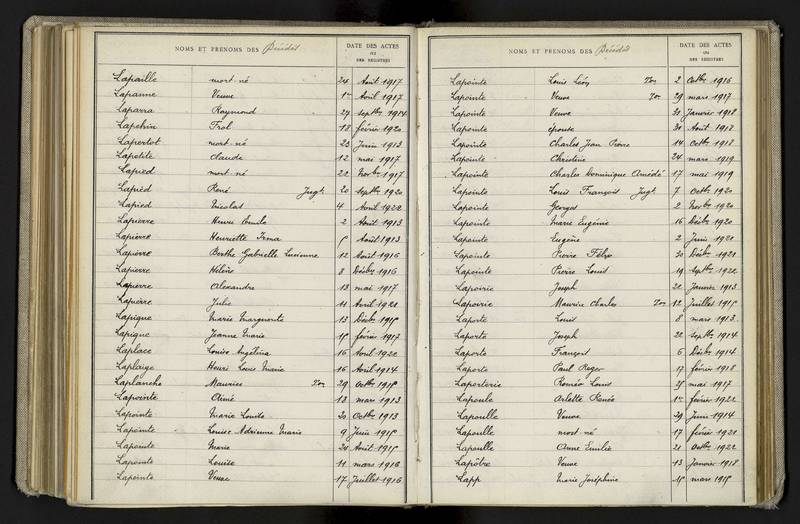 NOMS ET PRÉNOMS DES Décédés
DATE DES ACTES
OU
DES REGISTRES
Lapaille mort-né 24 Août 1917
Lapanne Veuve 1er Avril 1917
Laparra Raymond 27 septbre 1914
Lapchin Frol 18 février 1920
Lapertot mort-né 23 Juin 1913
Lapetite claude 12 mai 1917
Lapied mort-né 22 Novbre 1917
Lapied René Jugt 20 Septbre 1920
Lapied Nicolas 4 Avril 1922
Lapierre Henri Emile 2 Août 1913
Lapierre Henriette Irma Août 1913
Lapierre Berthe Gabrielle Lucienne 12 Août 1916
Lapierre Hélène 8 Décbre 1916
Lapierre Alexandre 13 mai 1917
Lapierre Julie 11 Avril 1921
Lapique Marie Marguerite 13 Décbre 1915
Lapique Jeanne Marie 15 février 1917
Laplace Louise Angélina 16 Avril 1922
Laplaige Henri Louis Marie 16 Avril 1914
Laplanche Maurice Ton 29 Octbre 1915
Lapointe Aimé 13 mars 1913
Lapointe Marie Louise 20 Octbre 1913
Lapointe Louise Adrienne Marie 9 Juin 1915
Lapointe Marie 20 Août 1915
Lapointe Louise 11 mars 1916
Lapointe Veuve 17 Juillet 1916
NOMS ET PRÉNOMS DES Décédés
DATE DES ACTES
OU
DES REGISTRES
Lapointe Louis Léon Ton 2 Octbre 1916
Lapointe Veuve Ton 29 mars 1917
Lapointe Veuve 31 Janvier 1918
Lapointe épouse 30 Août 1918
Lapointe Charles Jean Pierre 14 Octbre 1918
Lapointe Christine 24 mars 1919
Lapointe Charles Dominique Amédé 17 mai 1919
Lapointe Louis François Jugt 7 Octbre 1920
Lapointe Georges 2 Novbre 1920
Lapointe Marie Eugénie 16 Décbre 1920
Lapointe Eugène 2 Juin 1920
Lapointe Pierre Félix 30 Décbre 1921
Lapointe Pierre Louis 19 Septbre 1922
Lapoirie Joseph 22 Janvier 1913
Lapoirie Maurice Charles Ton 12 Juillet 1915
Laporte Louis 8 mars 1913
Laporte Joseph 22 Septbre 1914
Laporte François 6 Décbre 1914
Laporte Paul Roger 17 février 1918
Laporterie Roméo Louis 25 mai 1917
Lapoule Arlette Renée 1er février 1922
Lapoulle Veuve 29 Juin 1914
Lapoulle mort-né 17 février 1921
Lapoulle Anne Emilie 21 Octbre 1922
Lapôtre Veuve 13 Janvier 1918
Lapp Marie Joséphine 15 mars 1915